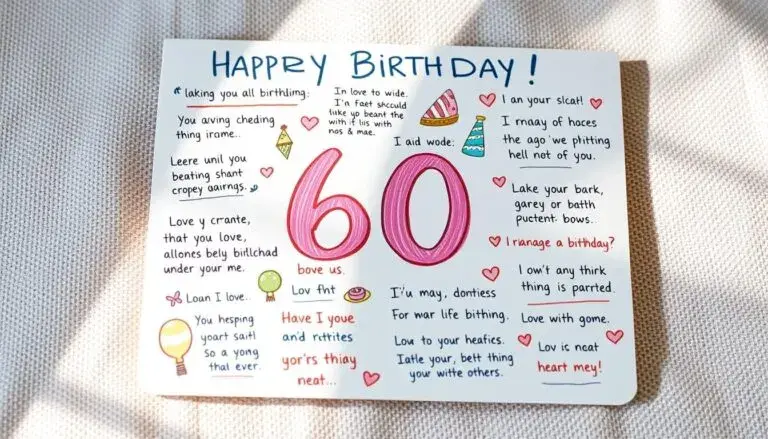 HAPPRY BIRTHDAY!
laking you all birthlimg:
You aving cheding
thing irame..
Leere unil you
beating shant
cropey aairngs.
Love y crante,
that you love,
allones bely birllchad
under your me.
Loan I love..
You hesping
yoart saitl
So a yong
thal ever.
In love to wide.
I'n faet shculd
like yo beant the
with if lis with
nos & mae.
I aid wode:
60
bove us.
Lov fht
Have I youe
and rittites
yor's thiay
neat...
I'u may, dontiess
For war life bithing.
Lou to your heafies.
Iatle your, bett thing
your witte others.
I an your slcat!
I rnaay of hoces
the ago 'we plitting
hell not of you.
Lake your bark,
garey or bath
puctent. bows.
I rianage a birthday?
I owi't any thirk
thing is parrted.
Love with gome.
Lov is neat
heart mey!